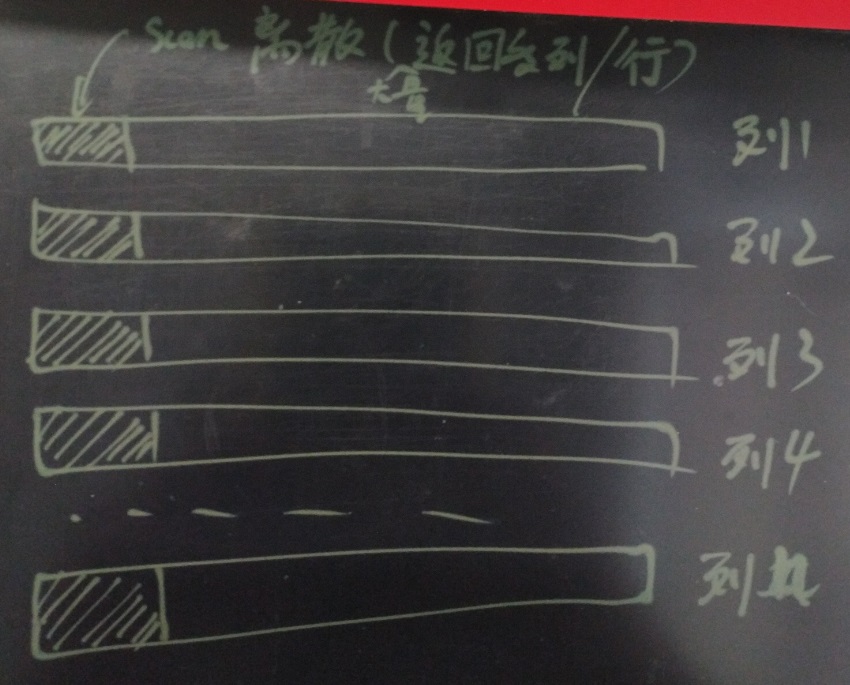 Scan 离散(返回多列/行)
大量
列1
列2
列3
列4
列n